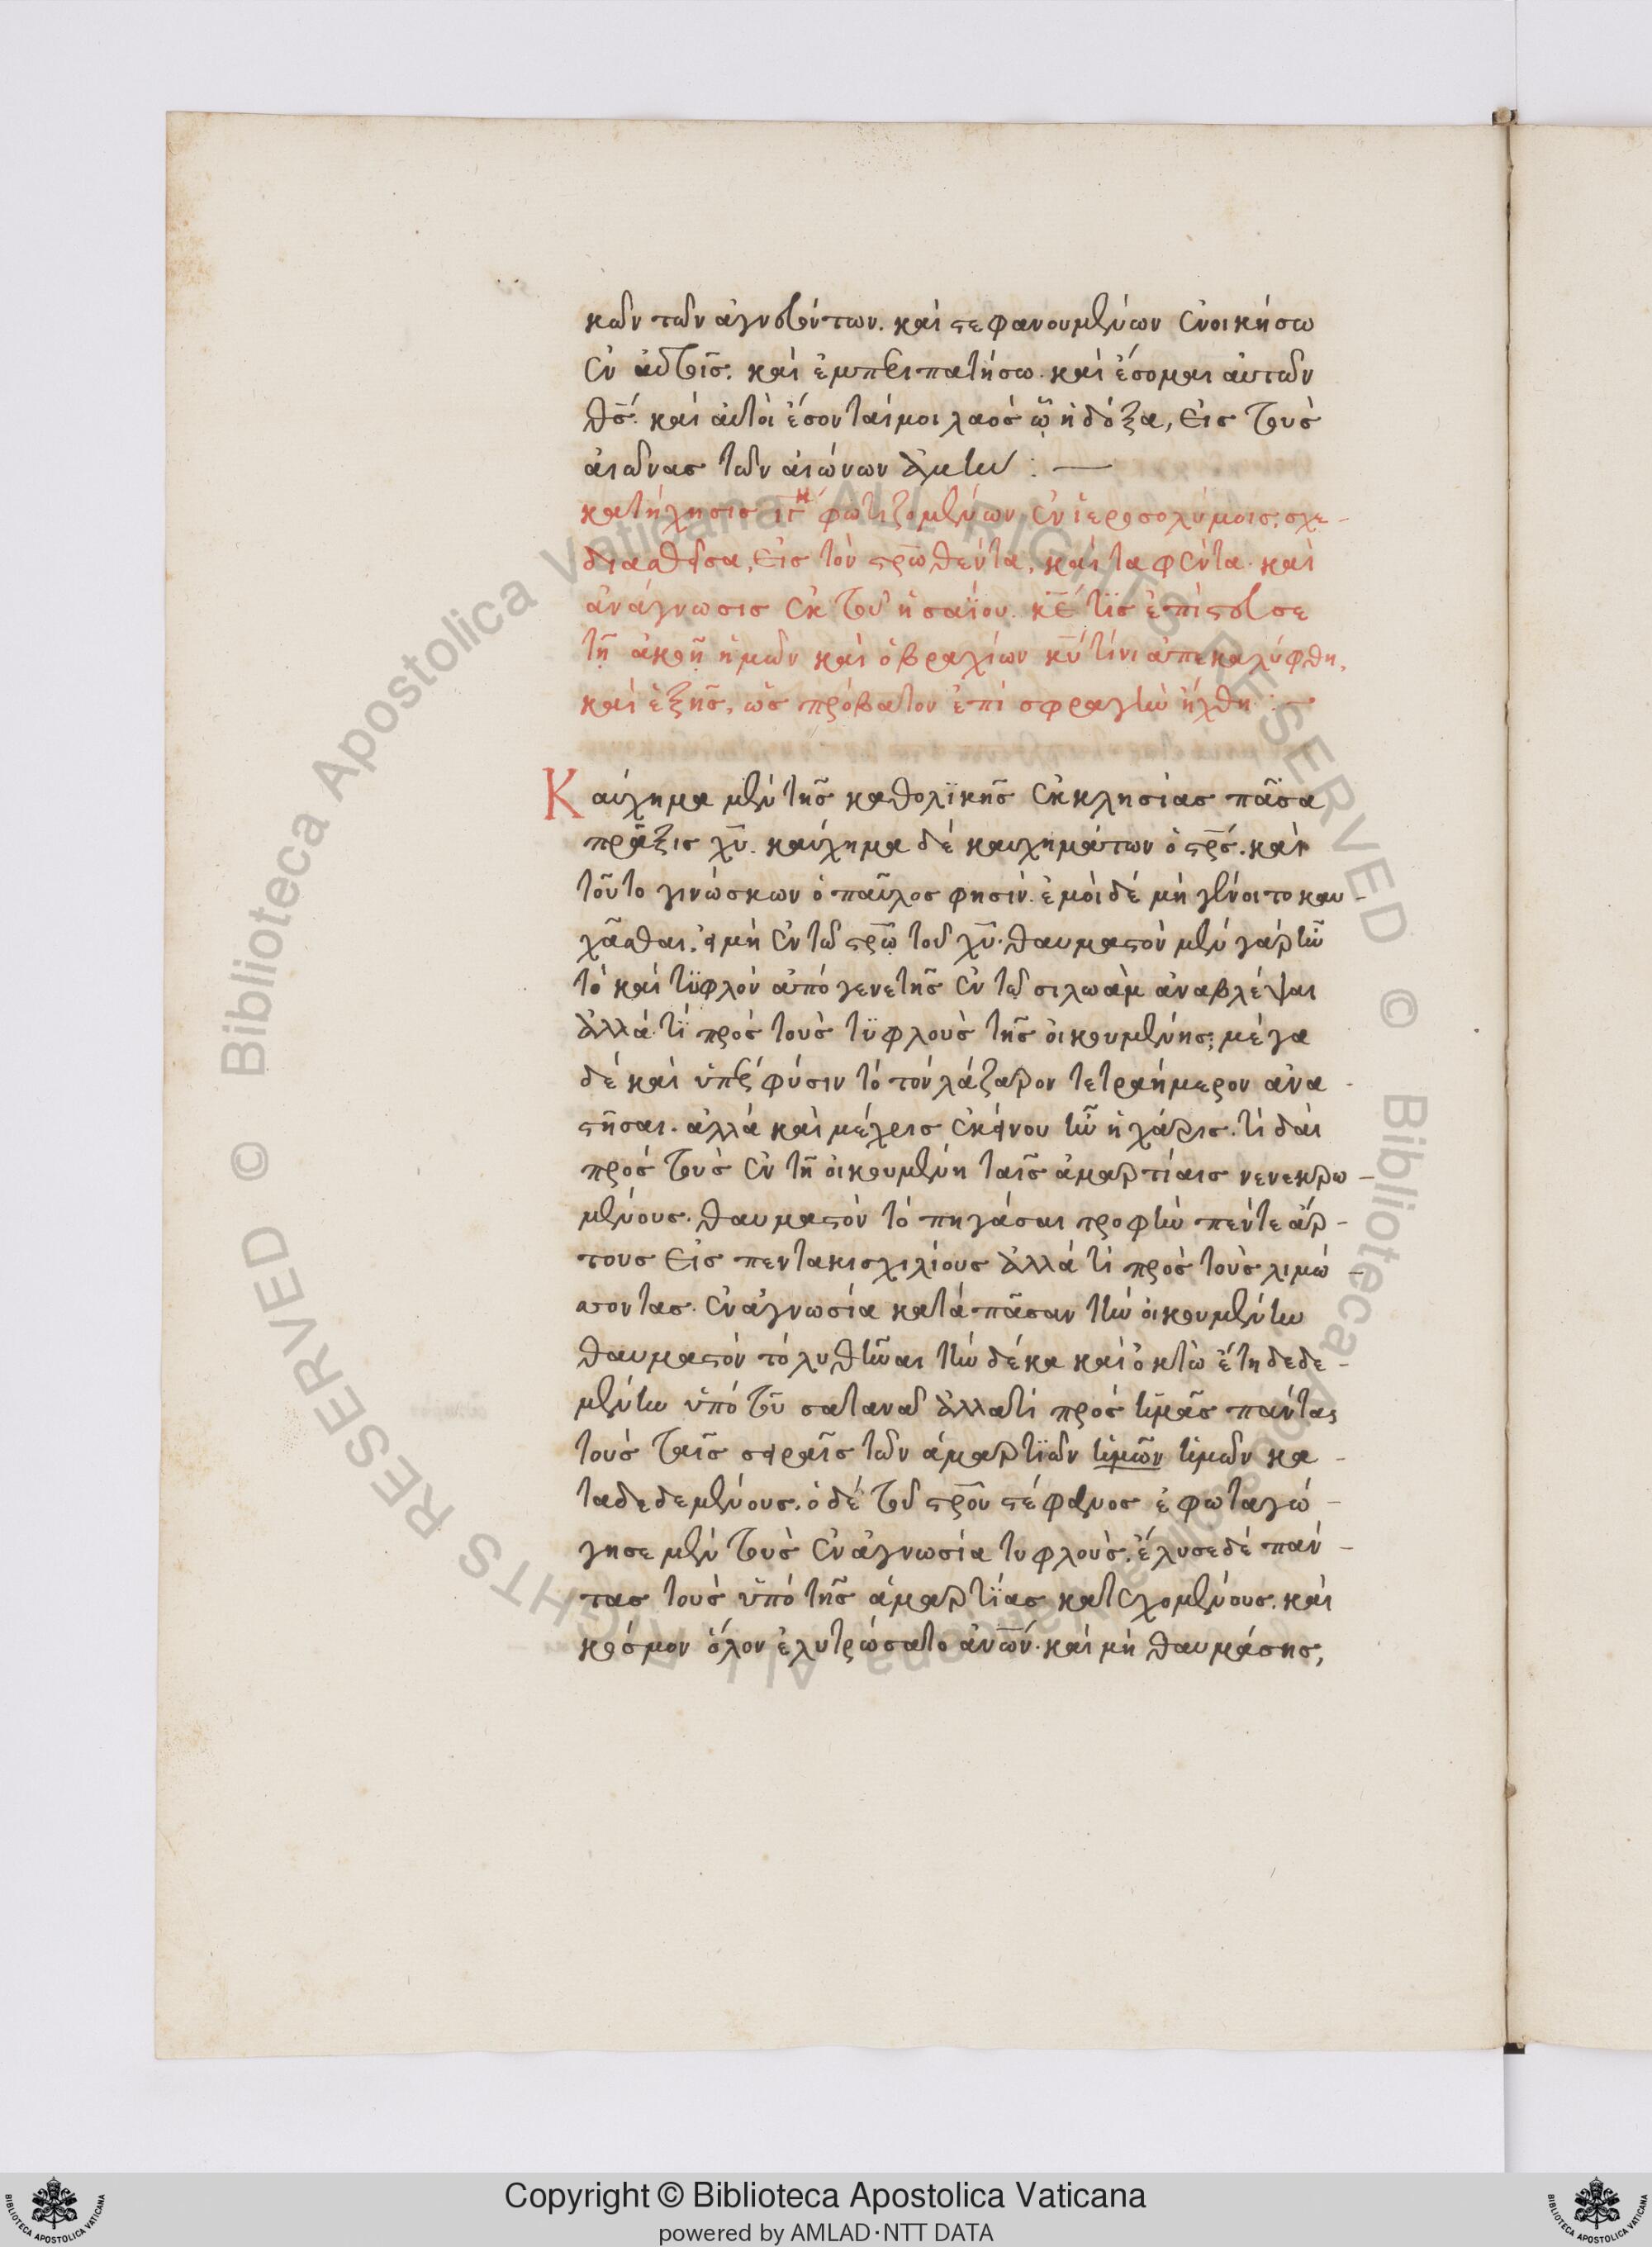 κῶν τῶν ἀγνοούντων. καὶ στεφανουμένων ἐνοικήσω
ἐν αὐτοῖς. καὶ ἐμπεριπατήσω. καὶ ἔσομαι αὐτῶν
θς. καὶ αὐτοὶ ἔσονταί μοι λαός ᾧ ἡ δόξα, εἰς τοὺς
αἰῶνας τῶν αἰώνων ἀμήν : —
κατήχησις ιγ φωτιζομένων ἐν ἱεροσολύμοις, σχε-
διασθεῖσα, εἰς τὸν στρωθέντα, καὶ ταφέντα. καὶ
ἀνάγνωσις ἐκ τοῦ ἡσαΐου. κε τίς ἐπίστευσε
τῇ ἀκοῇ ἡμῶν καὶ ὁ βραχίων κυ τίνι ἀπεκαλύφθη,
καὶ ἑξῆς, ὡς πρόβατον ἐπὶ σφραγὴν ἤχθη : —
Καύχημα μὲν τῆς καθολικῆς ἐκκλησίας πᾶσα
πρᾶξις χυ. καύχημα δὲ καυχημάτων ὁ στρς. καὶ
τοῦτο γινώσκων ὁ παῦλος φησίν. ἐμοὶ δὲ μὴ γένοιτο καυ-
χᾶσθαι, εἰ μὴ ἐν τῷ στρῷ τοῦ χυ. θαυμαστὸν μὲν γὰρ ἦν
τὸ καὶ τυφλὸν ἀπὸ γενετῆς ἐν τῷ σιλωὰμ ἀναβλέψαι
ἀλλὰ τί πρὸς τοὺς τυφλοὺς τῆς οἰκουμένης; μέγα
δὲ καὶ ὑπὲρ φύσιν τὸ τὸν λάζαρον τετραήμερον ἀνα-
στῆσαι. ἀλλὰ καὶ μέχρις ἐκείνου ἦν ἡ χάρις. τί δαὶ
πρὸς τοὺς ἐν τῇ οἰκουμένῃ ταῖς ἁμαρτίαις νενεκρω-
μένους. θαυμαστὸν τὸ πηγάσαι τροφὴν πέντε ἄρ-
τους εἰς πεντακισχιλίους ἀλλὰ τί πρὸς τοὺς λιμώ-
σσοντας. ἐν ἀγνωσία κατὰ πᾶσαν τὴν οἰκουμένην
θαυμαστὸν τὸ λυθῆναι τὴν δέκα καὶ ὀκτὼ ἔτη δεδε-
μένην ὑπὸ τοῦ σατανᾶ ἀλλὰ τί πρὸς ἡμᾶς πάντας
τοὺς ταῖς σειραῖς τῶν ἁμαρτιῶν ἡμῶν ἡμῶν κα-
ταδεδεμένους. ὁ δὲ τοῦ στρου στέφανος ἐφωταγώ-
γησε μὲν τοὺς ἐν ἀγνωσία τυφλούς, ἔλυσε δὲ πάν-
τας τοὺς ὑπὸ τῆς ἁμαρτίας κατεχομένους. καὶ
κόσμον ὅλον ἐλυτρώσατο ἀνων. καὶ μὴ θαυμάσης,
© Biblioteca Apostolica Vaticana ALL RIGHTS RESERVED
Copyright © Biblioteca Apostolica Vaticana
powered by AMLAD·NTT DATA
BIBLIOTECA APOSTOLICA VATICANA